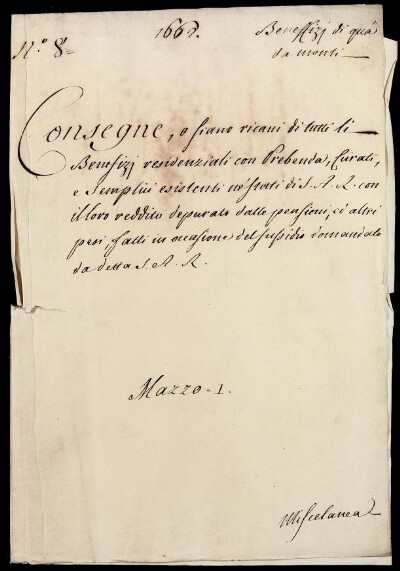 N.º 8.
1662.
Beneffizj di quà
da monti
Consegne, o siano ricavi di tutti li
Benefizj residenziali con Prebenda, Curati,
e Semplici esistenti ne' stati di S. A. R. con
il loro reddito depurato dalle pensioni, ed altri
pesi, fatti in occasione del sussidio domandato
da detta S. A. R.
Mazzo 1.
Miscelanea